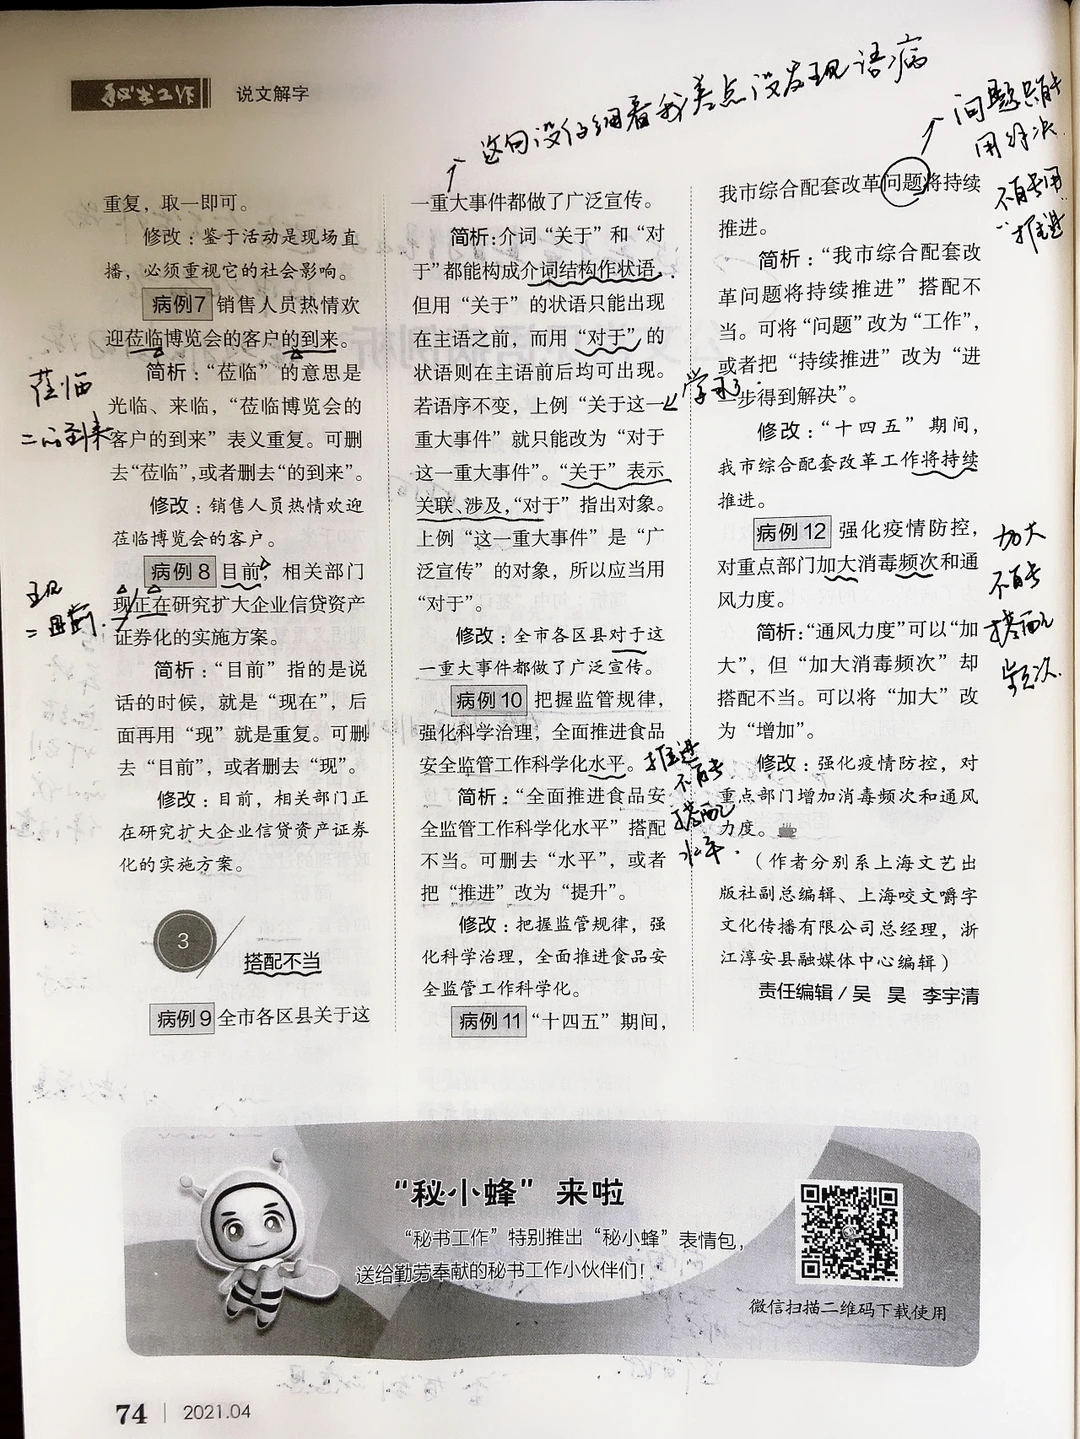 秘书工作 说文解字
这句没仔细看我差点没发现语病
问题只能
用解决
不能用
“推进
重复，取一即可。
修改：鉴于活动是现场直
播，必须重视它的社会影响。
病例7 销售人员热情欢
迎莅临博览会的客户的到来。
简析：“莅临”的意思是
光临、来临，“莅临博览会的
客户的到来”表义重复。可删
去“莅临”，或者删去“的到来”。
修改：销售人员热情欢迎
莅临博览会的客户。
病例8 目前，相关部门
现正在研究扩大企业信贷资产
证券化的实施方案。
简析：“目前”指的是说
话的时候，就是“现在”，后
面再用“现”就是重复。可删
去“目前”，或者删去“现”。
修改：目前，相关部门正
在研究扩大企业信贷资产证券
化的实施方案。
莅临
=的到来
现
=目前
3
搭配不当
病例9 全市各区县关于这
一重大事件都做了广泛宣传。
简析：介词“关于”和“对
于”都能构成介词结构作状语，
但用“关于”的状语只能出现
在主语之前，而用“对于”的
状语则在主语前后均可出现。
若语序不变，上例“关于这一
重大事件”就只能改为“对于
这一重大事件”。“关于”表示
关联、涉及，“对于”指出对象。
上例“这一重大事件”是“广
泛宣传”的对象，所以应当用
“对于”。
修改：全市各区县对于这
一重大事件都做了广泛宣传。
学习了.
病例10 把握监管规律，
强化科学治理，全面推进食品
安全监管工作科学化水平。
简析：“全面推进食品安
全监管工作科学化水平”搭配
不当。可删去“水平”，或者
把“推进”改为“提升”。
修改：把握监管规律，强
化科学治理，全面推进食品安
全监管工作科学化。
推进
不能
搭配
水平.
病例11 “十四五”期间，
我市综合配套改革问题将持续
推进。
简析：“我市综合配套改
革问题将持续推进”搭配不
当。可将“问题”改为“工作”，
或者把“持续推进”改为“进
一步得到解决”。
修改：“十四五”期间，
我市综合配套改革工作将持续
推进。
病例12 强化疫情防控，
对重点部门加大消毒频次和通
风力度。
简析：“通风力度”可以“加
大”，但“加大消毒频次”却
搭配不当。可以将“加大”改
为“增加”。
修改：强化疫情防控，对
重点部门增加消毒频次和通风
力度。
加大
不能
搭配
频次.
（作者分别系上海文艺出
版社副总编辑、上海咬文嚼字
文化传播有限公司总经理，浙
江淳安县融媒体中心编辑）
责任编辑/吴 昊 李宇清
“秘小蜂”来啦
“秘书工作”特别推出“秘小蜂”表情包，
送给勤劳奉献的秘书工作小伙伴们！
微信扫描二维码下载使用
74 | 2021.04